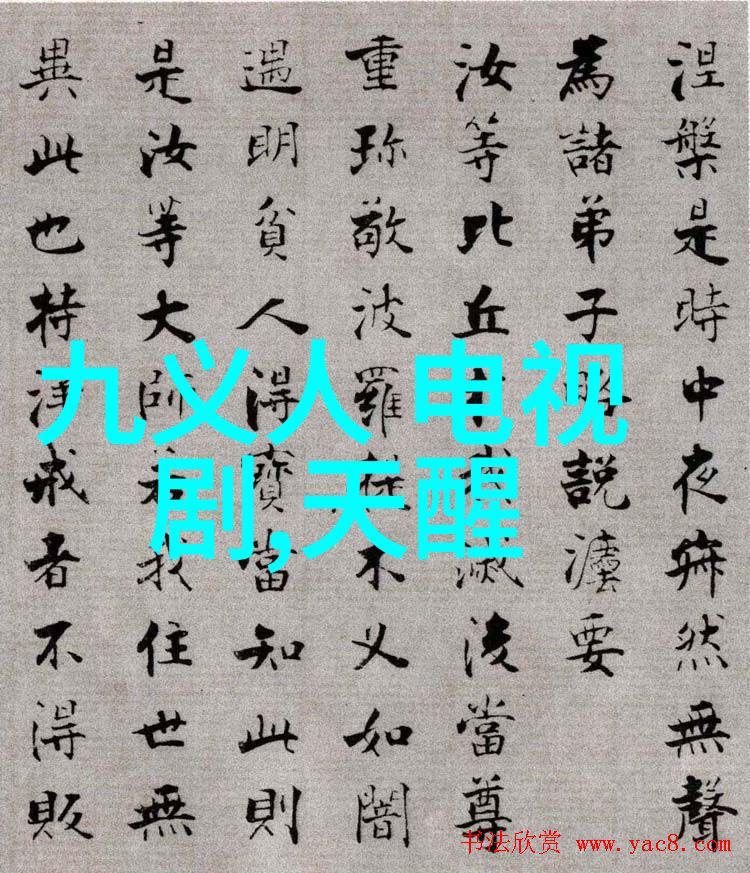 涅槃是時中夜寂然無聲
為諸弟子略說灋要
汝等比丘我滅後當尊
重珎敬波羅提木叉如闇
遇明貧人得寶當知此則
是汝等大師若我住世無
異此也持淨戒者不得販
九义人 电视
剧,天醒
书法欣赏 www.yac8.com